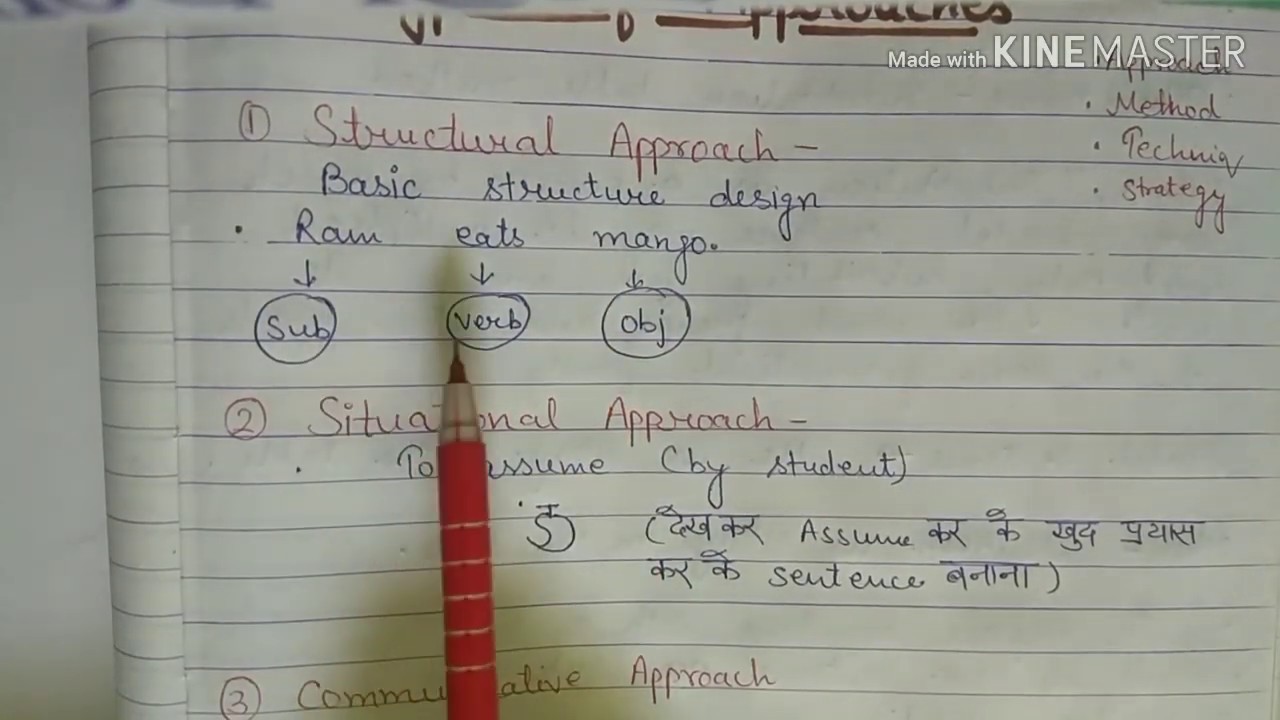 Approaches
Made with KINEMASTER
Approach
· Method
· Techniq
· Strategy
① Structural Approach –
Basic structure design
· Ram eats mango.
↓ ↓ ↓
Sub verb obj
② Situational Approach –
· To assume (by student)
(देख कर Assume कर के खुद प्रयास
कर के sentence बनाना)
③ Communicative Approach